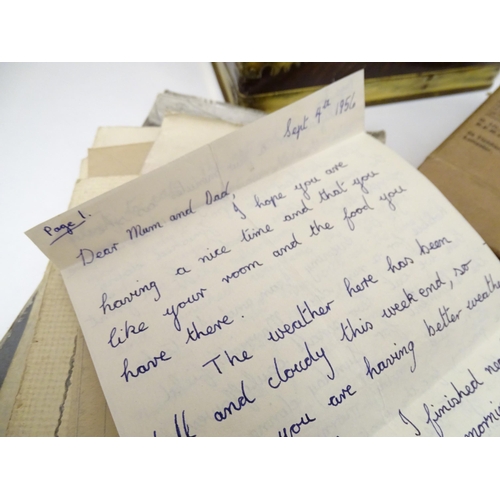 Sept 4th 1956
Page 1.
Dear Mum and Dad
I hope you are
having a nice time and that you
like your room and the food you
have there.
The weather here has been
and cloudy this weekend, so
you are having better weathe
I finished